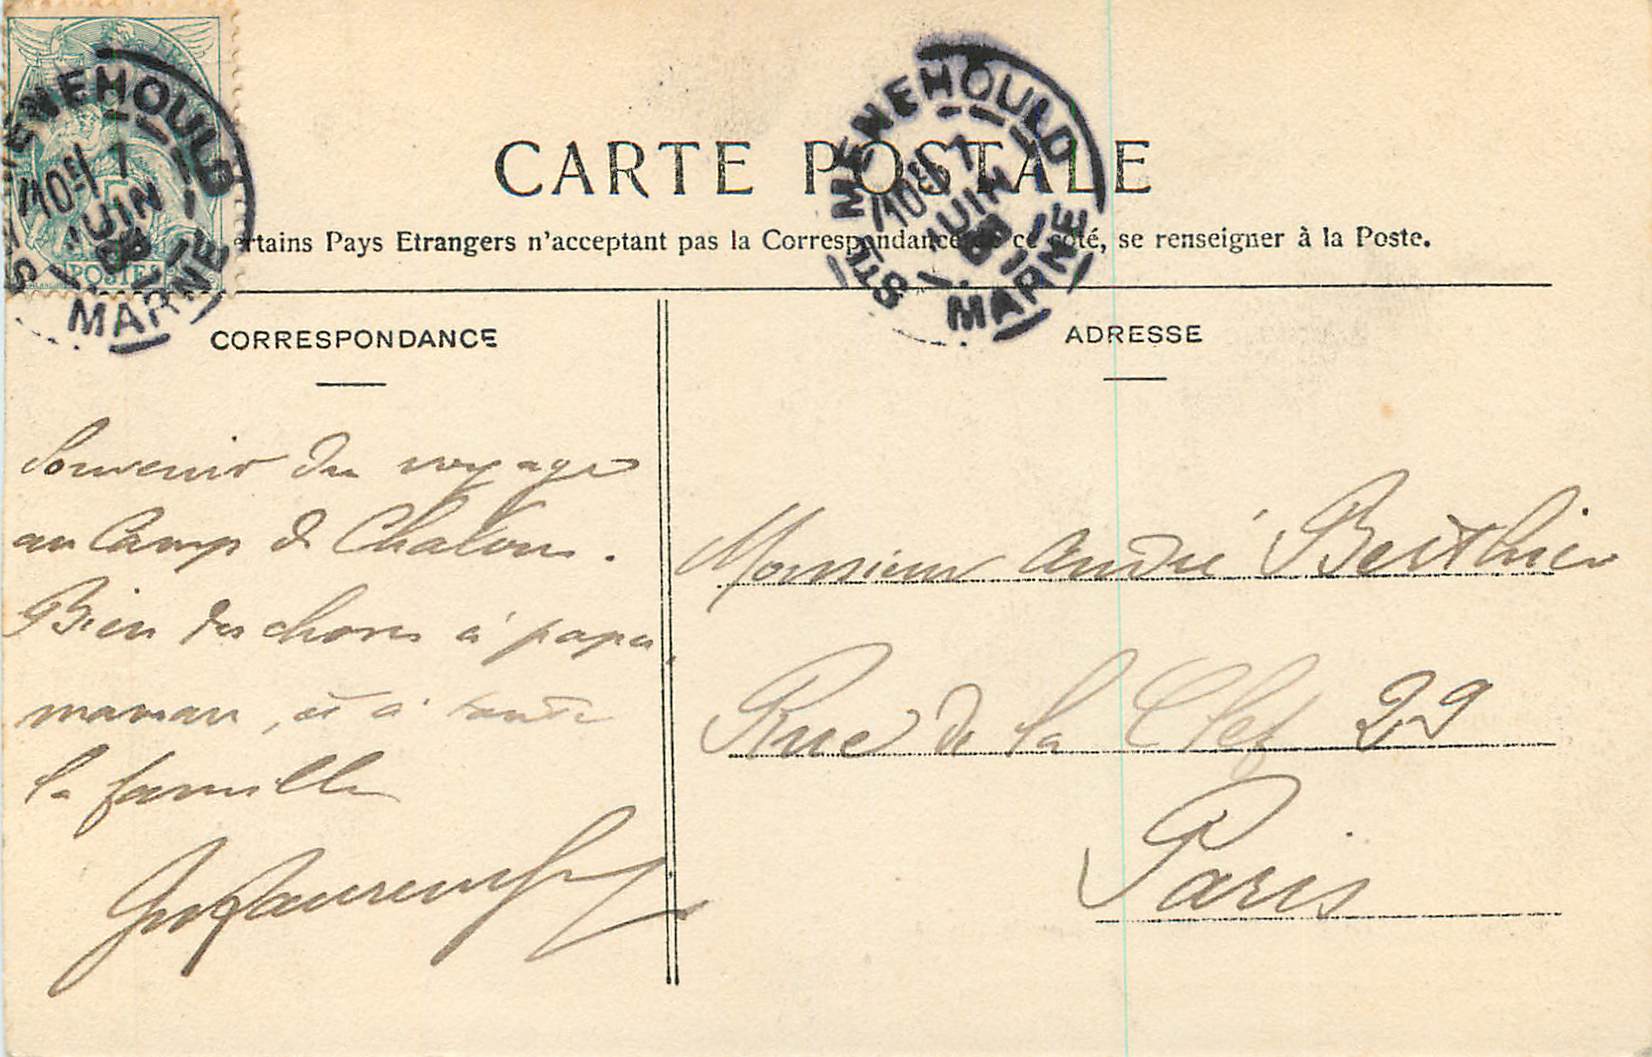 STE MENEHOULD
10E 7
JUIN
08
MARNE
POSTES
CARTE POSTALE
STE MENEHOULD
10E 7
JUIN
08
MARNE
ertains Pays Etrangers n'acceptant pas la Correspondance de ce côté, se renseigner à la Poste.
CORRESPONDANCE
Souvenir du voyage
au Camp de Chalons.
Bien des choses à papa,
maman, et à toute
la famille
ADRESSE
Monsieur André Berthier
Rue de la Clef 29
Paris